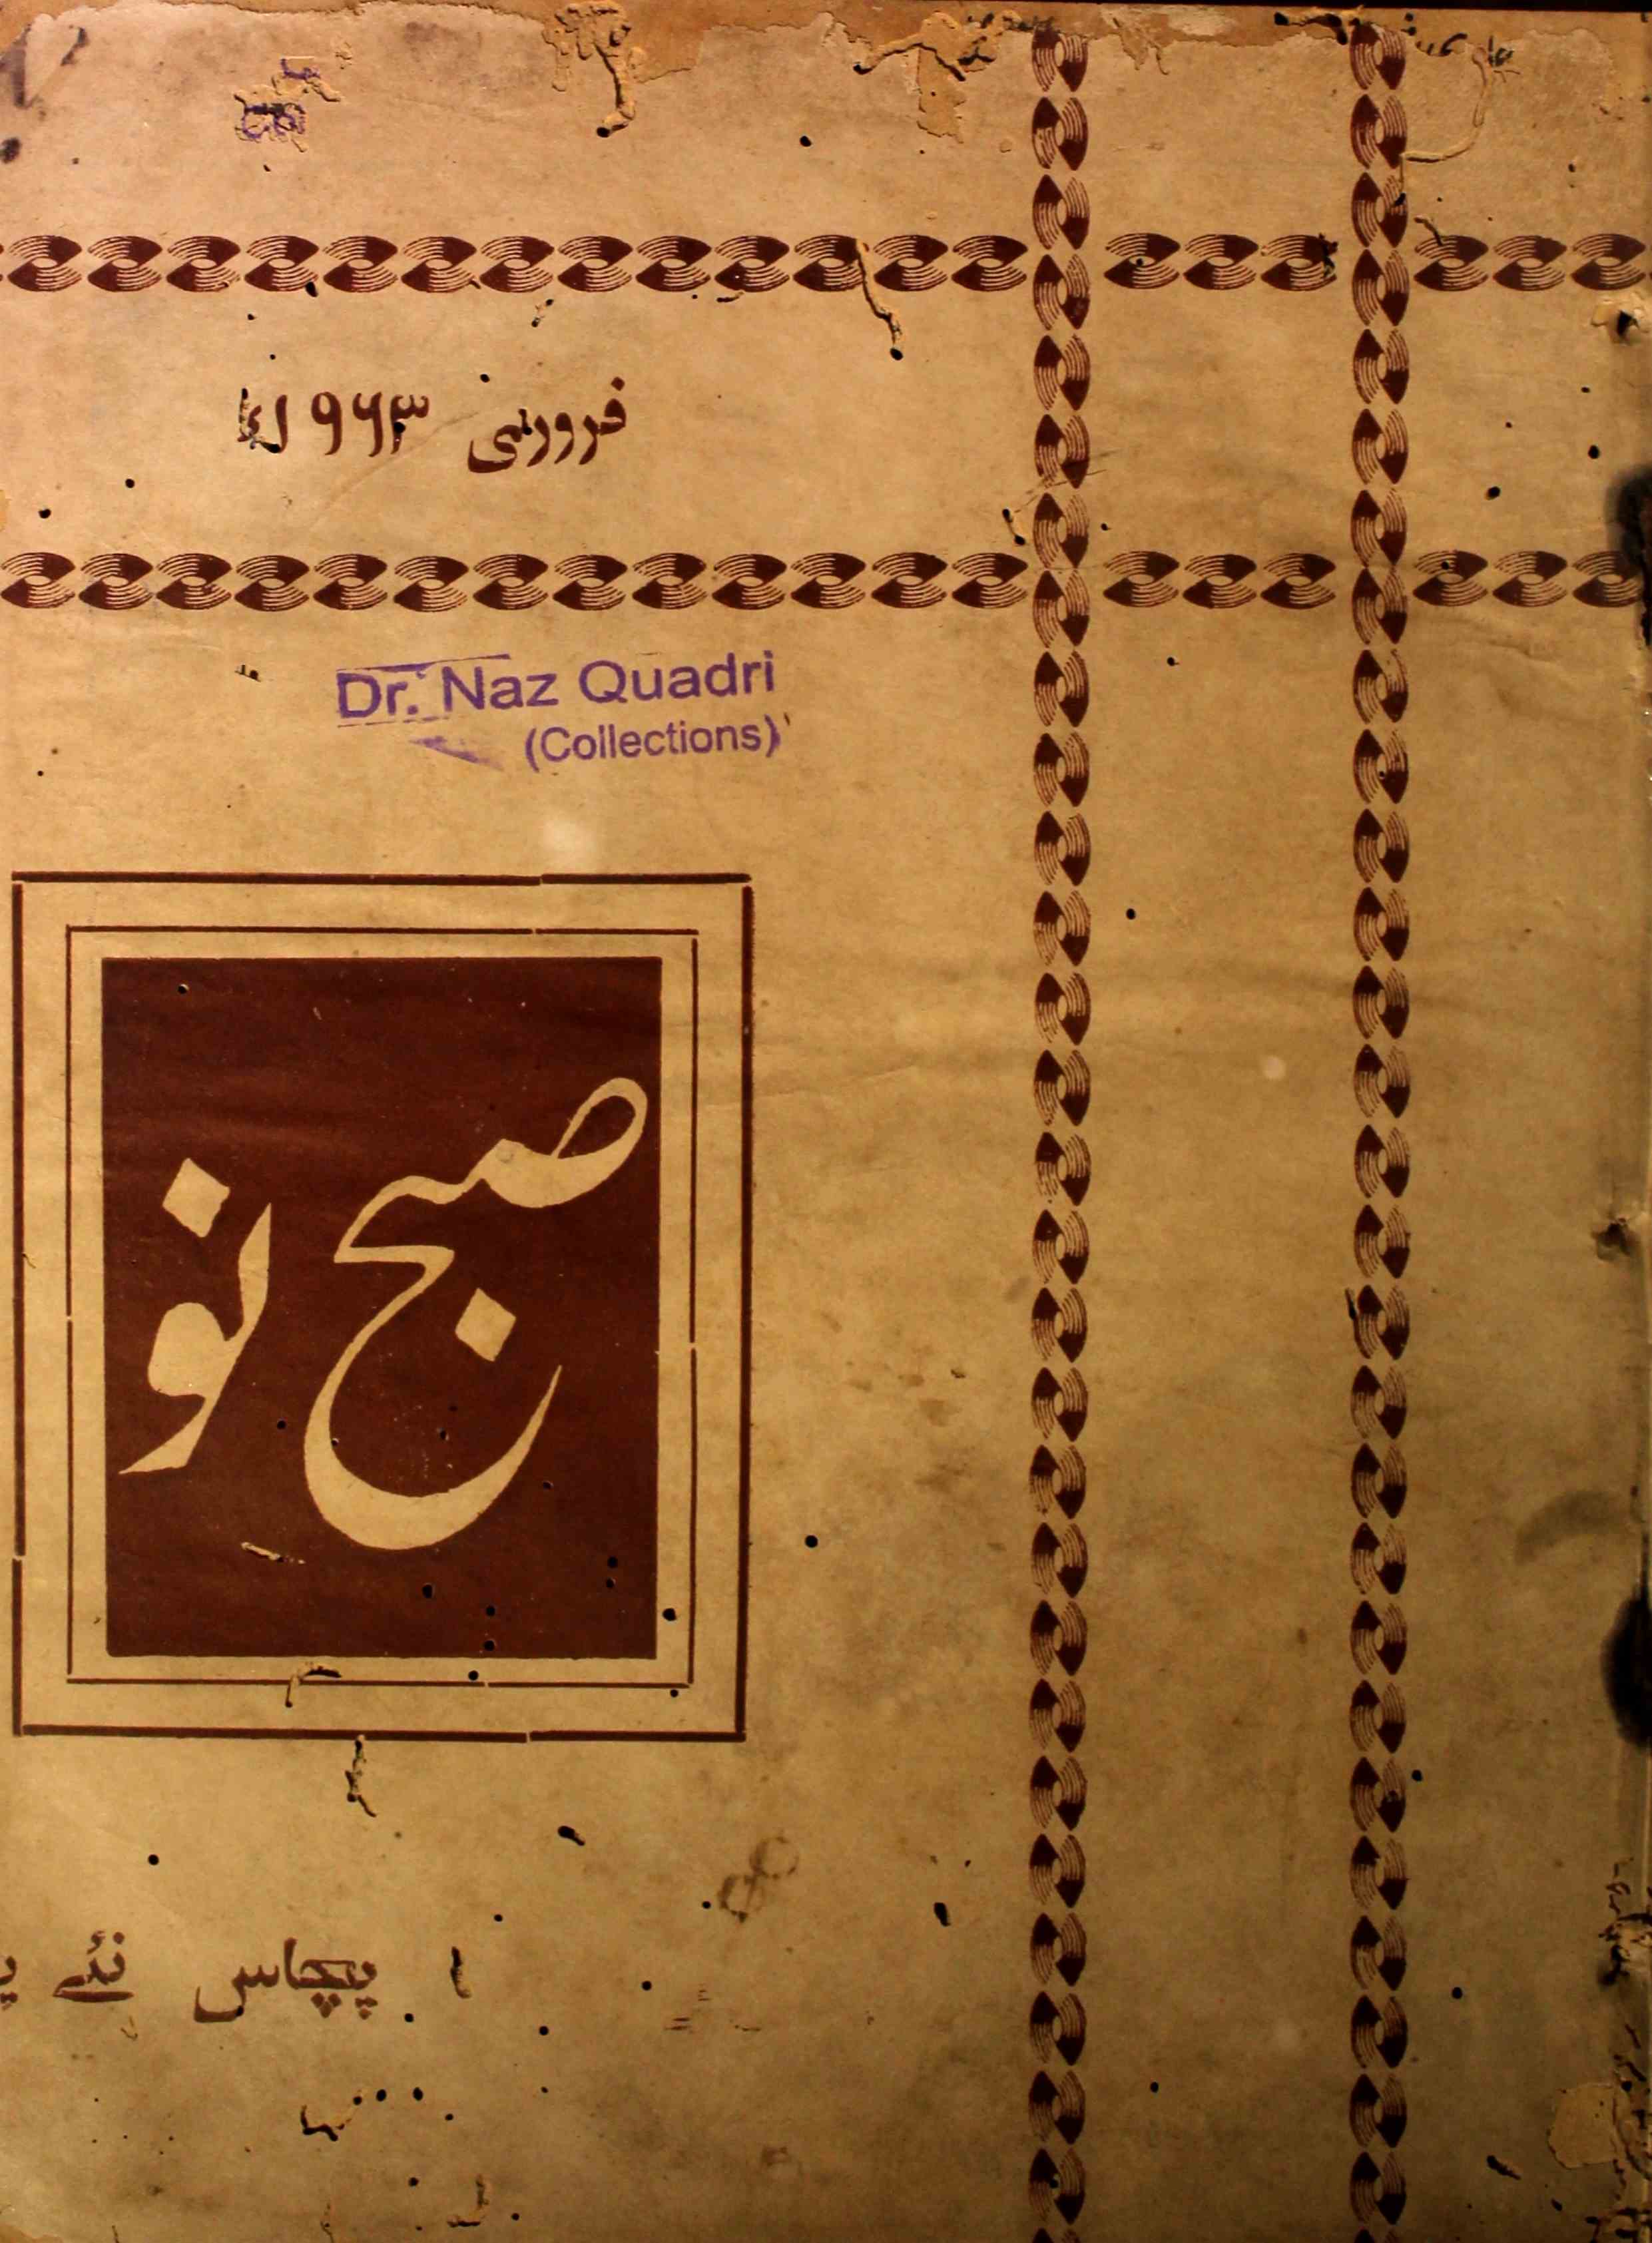 فروری ۱۹۶۳ء
Dr. Naz Quadri
(Collections)
صبح نو
پچاس نئے